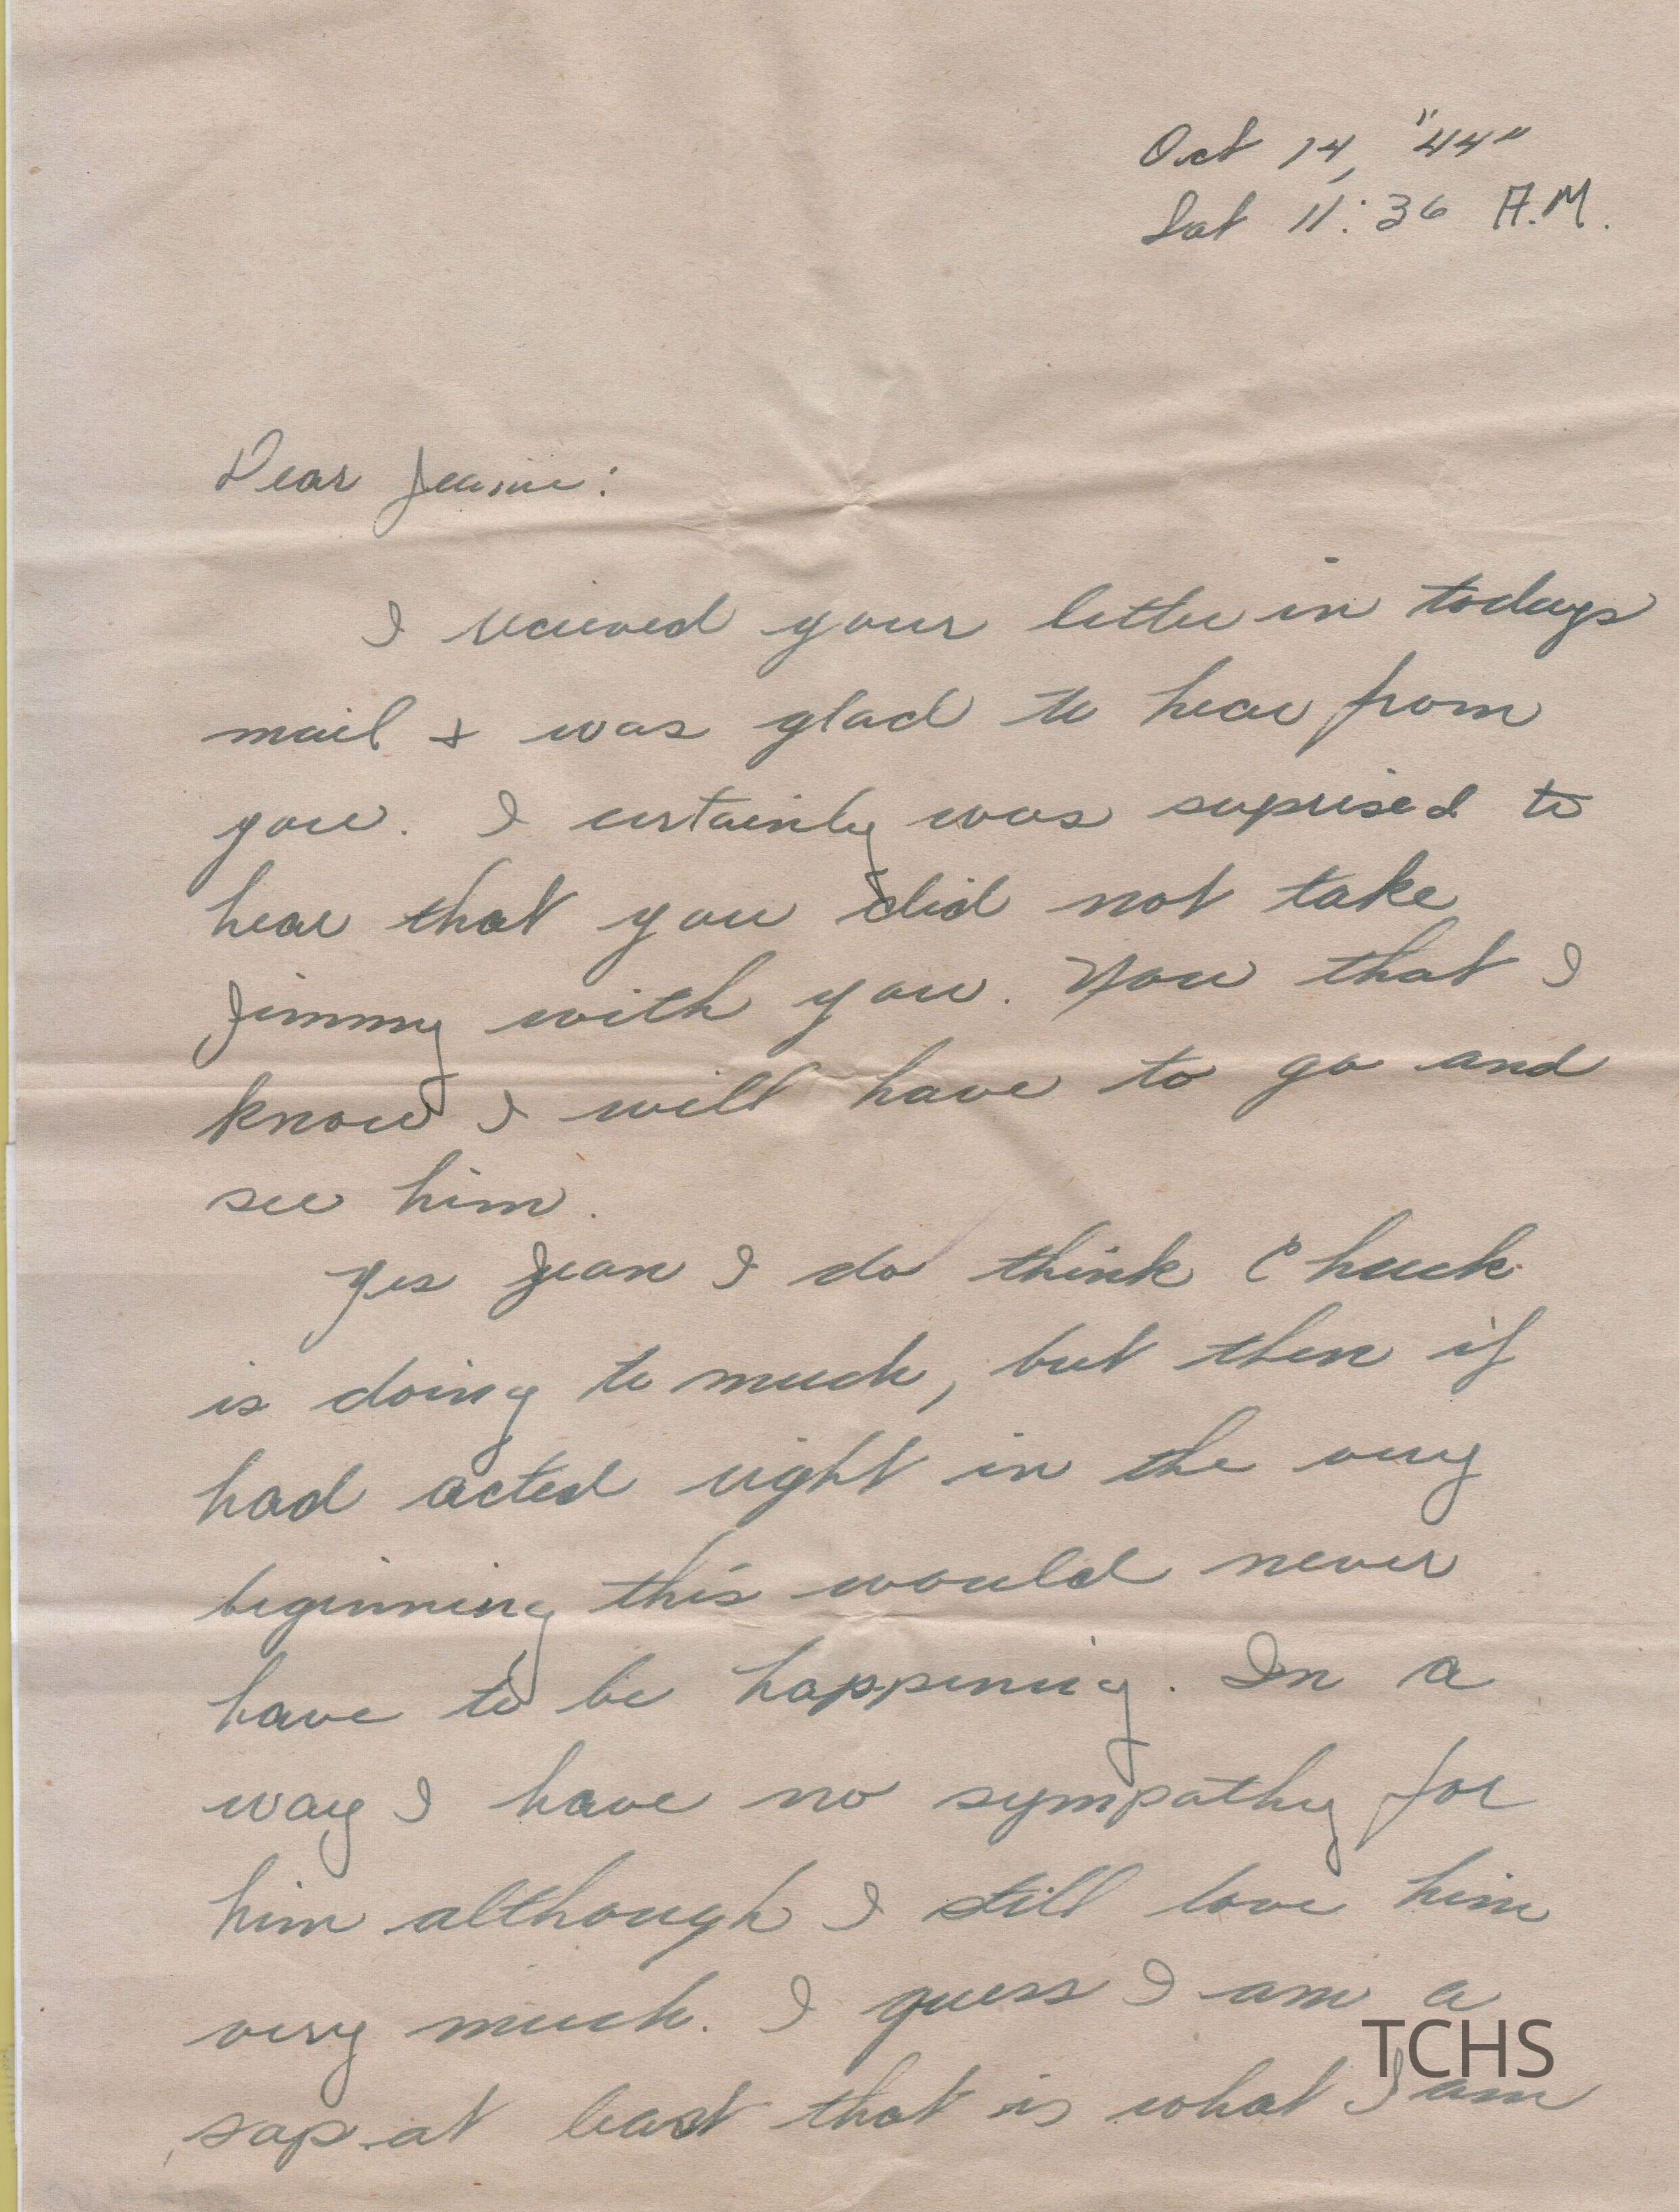 Oct 14, "44"
Sat 11:36 A.M.
Dear Jeanie:
I recieved your letter in todays
mail & was glad to hear from
you. I certainly was suprised to
hear that you did not take
Jimmy with you. Now that I
know I will have to go and
see him.
Yes Jean I do think Chuck
is doing to much, but then if
had acted right in the very
beginning this would never
have to be happening. In a
way I have no sympathy for
him although I still love him
very much. I guess I am a
TCHS
sap at least that is what I am